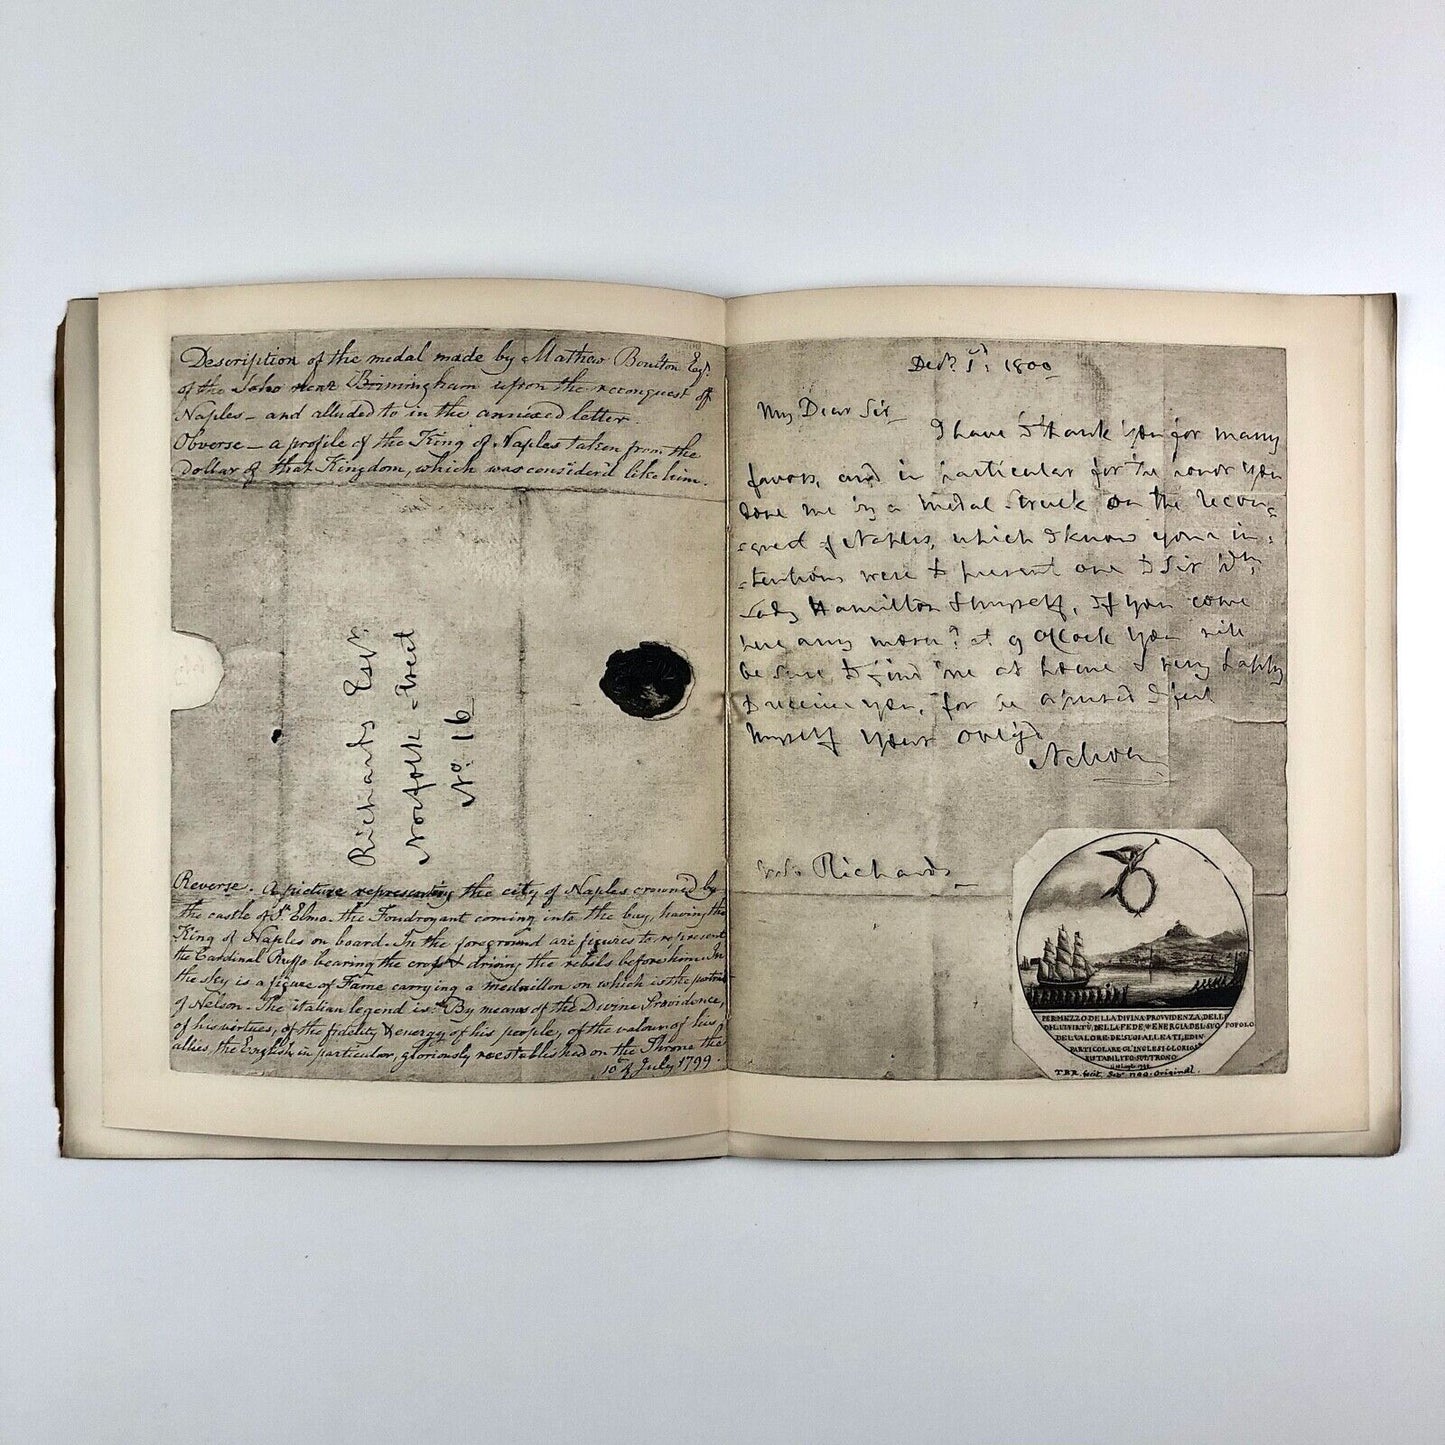 Description of the medal made by Mathew Boulton Esqr.
of the Soho near Birmingham upon the reconquest of
Naples - and alluded to in the annexed letter.
Obverse - a profile of the King of Naples taken from the
Dollar of that Kingdom, which was consider'd like him.
Richards Esqr.
Norfolk Street
No. 16
Reverse. A picture representing the city of Naples crowned by
the castle of St. Elmo. the Foudroyant coming into the bay, having the
King of Naples on board. In the foreground are figures to represent
the Cardinal Ruffo bearing the cross & driving the rebels before him. In
the sky is a figure of Fame carrying a medallion on which is the portrait
of Nelson. The italian legend is "By means of the Divine Providence,
of his virtues, of the fidelity & energy of his people, of the valour of his
allies, the English in particular, gloriously reestablished on the Throne the
10th of July 1799.
Decr. 1st: 1800
My Dear Sir
I have to thank you for many
favors, and in particular for the honor you
done me by a medal struck on the recon
quest of Naples, which I know your in
tentions were to present one to Sir Wm.
Lady Hamilton & myself, If you come
here any morng. at 9 o'Clock you will
be sure to find me at home & very happy
to receive you, for be assured I feel
myself your oblig'd
Nelson
Richards
PER MEZZO DELLA DIVINA PROVVIDENZA, DELLE
DI LUI VIRTÙ, DELLA FEDE, & ENERGIA DEL SUO POPOLO
DEL VALORE DE SUOI ALLEATI, ED IN
PARTICOLARE GL'INGLESI GLORIOSA
RISTABILITO SUL TRONO
T.B.R. fecit. 1799. Original.